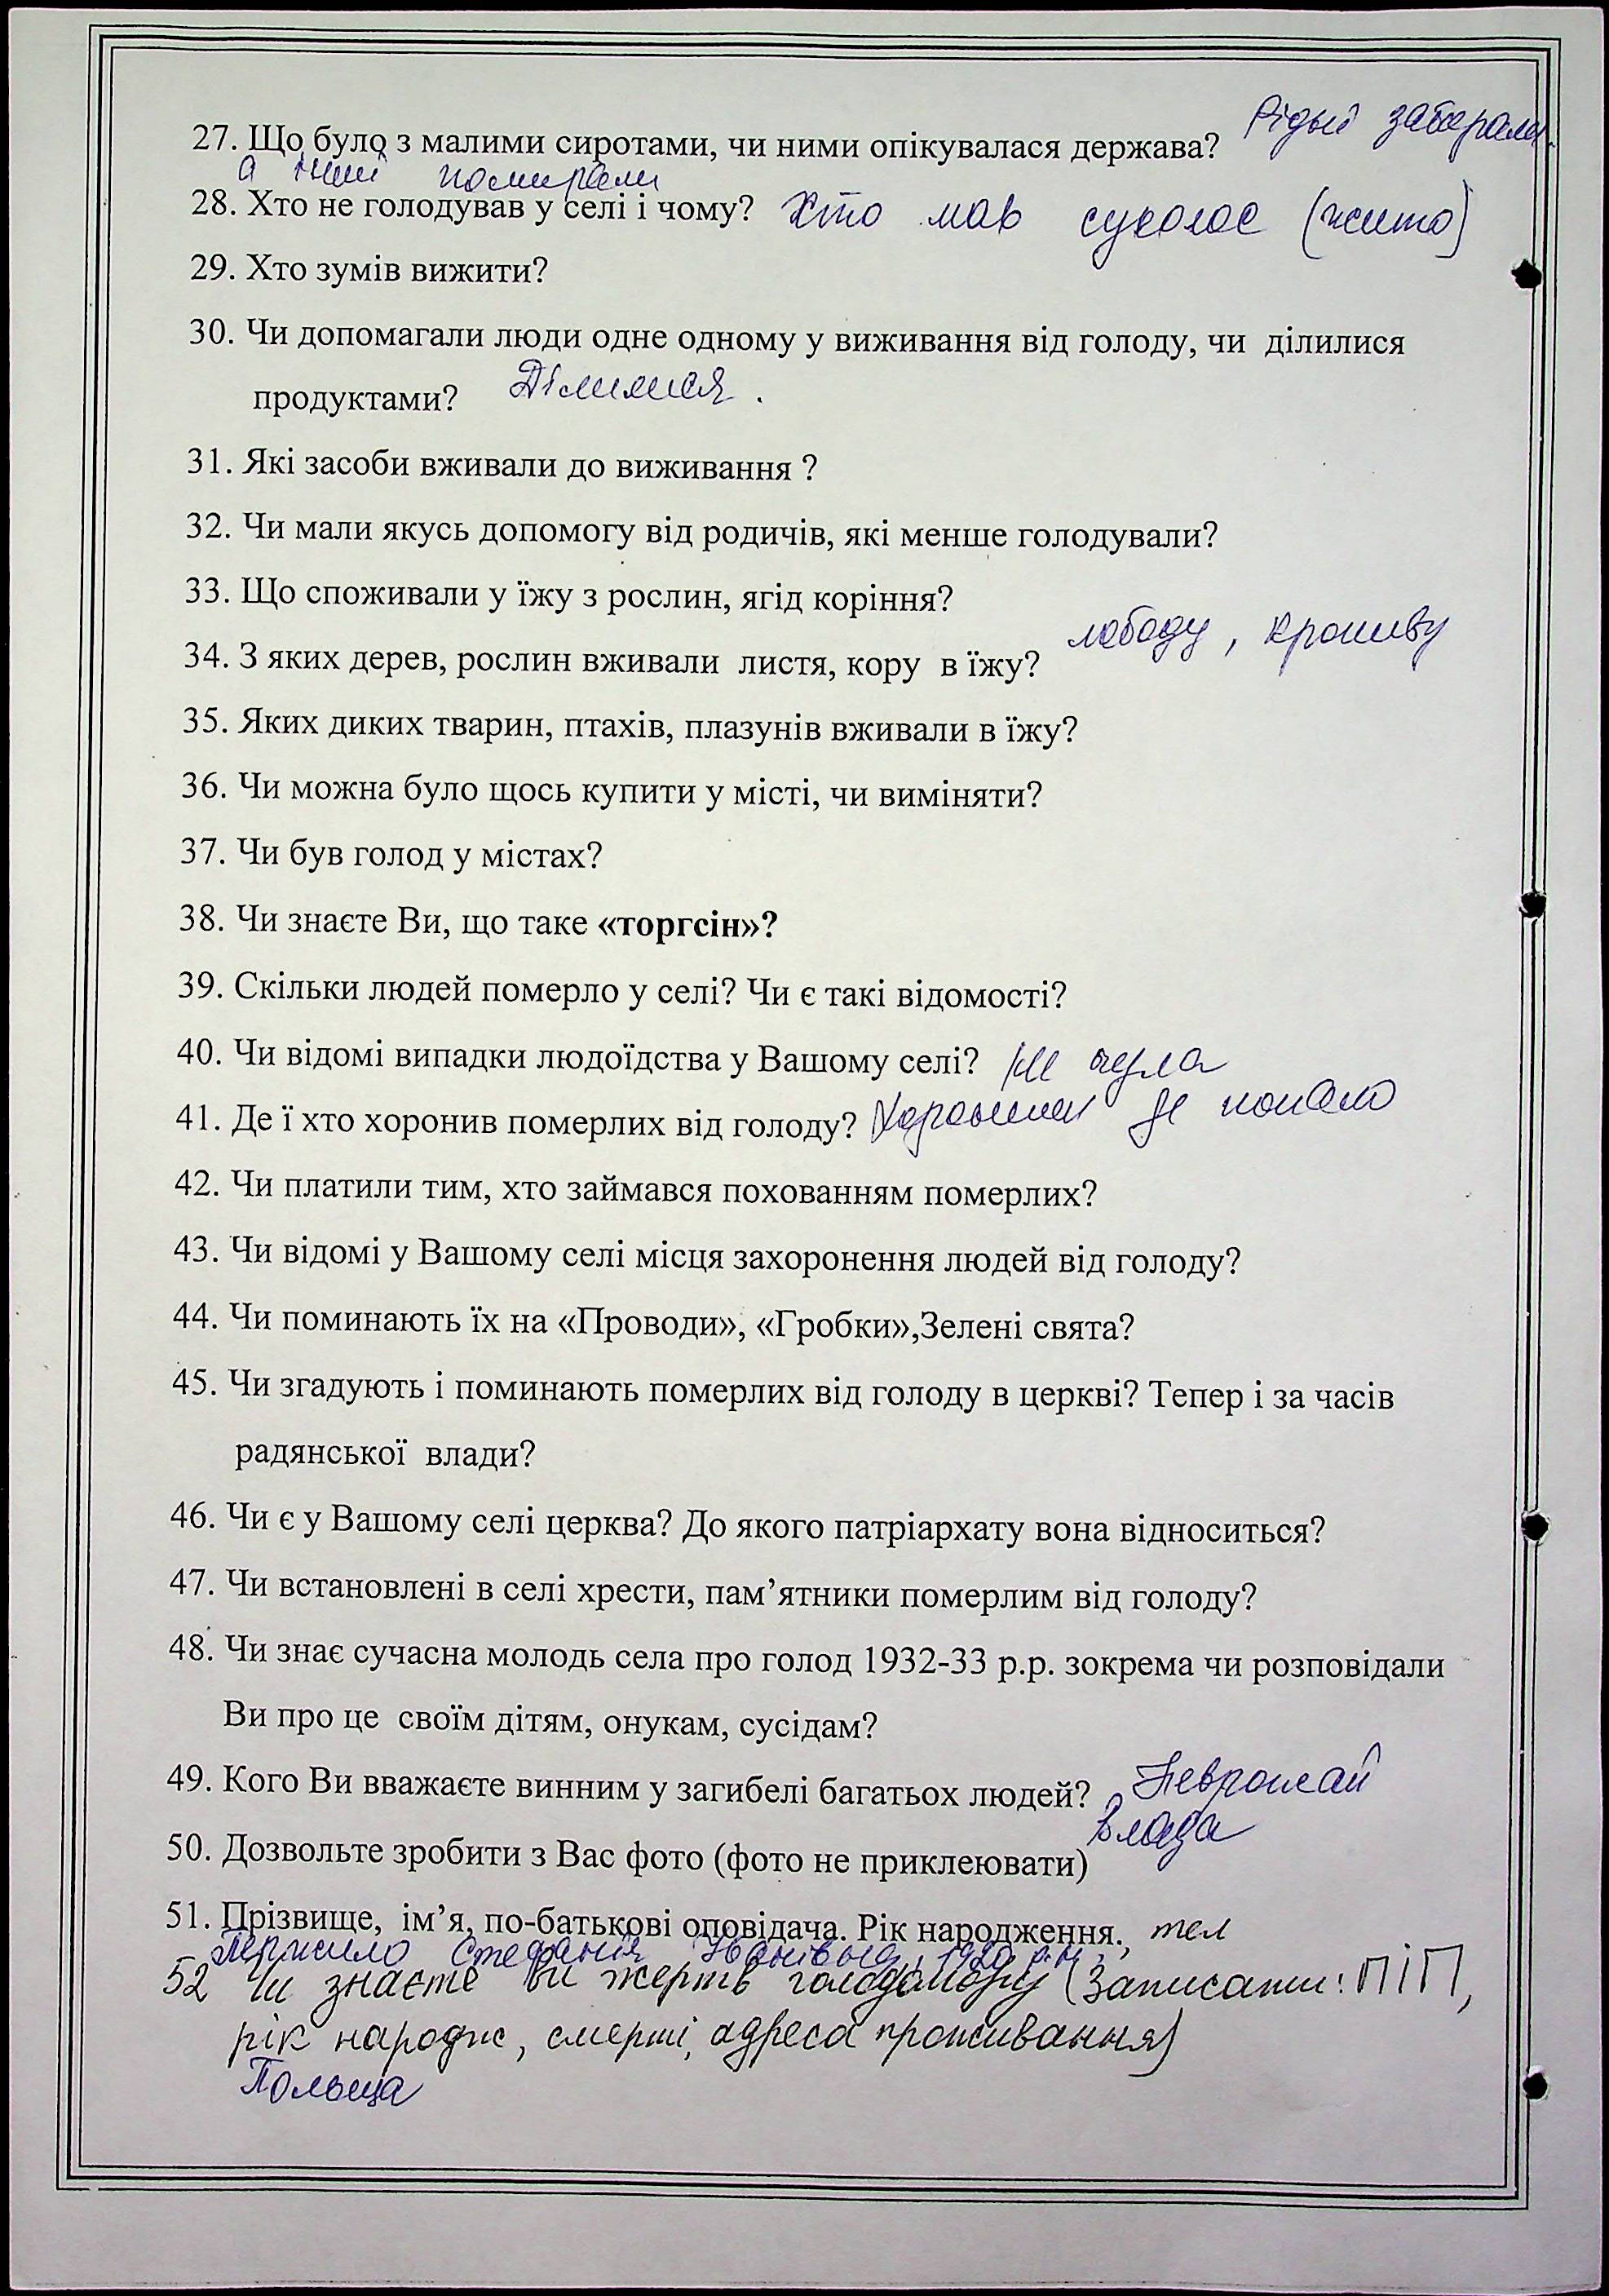 27. Що було з малими сиротами, чи ними опікувалася держава? Рідні забирали
а інші помирали
28. Хто не голодував у селі і чому? Хто мав суколос (жито)
29. Хто зумів вижити?
30. Чи допомагали люди одне одному у виживання від голоду, чи ділилися
продуктами? Ділилися.
31. Які засоби вживали до виживання ?
32. Чи мали якусь допомогу від родичів, які менше голодували?
33. Що споживали у їжу з рослин, ягід коріння?
34. З яких дерев, рослин вживали листя, кору в їжу? лободу, кропиву
35. Яких диких тварин, птахів, плазунів вживали в їжу?
36. Чи можна було щось купити у місті, чи виміняти?
37. Чи був голод у містах?
38. Чи знаєте Ви, що таке «торгсін»?
39. Скільки людей померло у селі? Чи є такі відомості?
40. Чи відомі випадки людоїдства у Вашому селі? Не чула
41. Де ї хто хоронив померлих від голоду? Хоронили де попало
42. Чи платили тим, хто займався похованням померлих?
43. Чи відомі у Вашому селі місця захоронення людей від голоду?
44. Чи поминають їх на «Проводи», «Гробки»,Зелені свята?
45. Чи згадують і поминають померлих від голоду в церкві? Тепер і за часів
радянської влади?
46. Чи є у Вашому селі церква? До якого патріархату вона відноситься?
47. Чи встановлені в селі хрести, пам’ятники померлим від голоду?
48. Чи знає сучасна молодь села про голод 1932-33 р.р. зокрема чи розповідали
Ви про це своїм дітям, онукам, сусідам?
49. Кого Ви вважаєте винним у загибелі багатьох людей? Неврожай
Влада
50. Дозвольте зробити з Вас фото (фото не приклеювати)
51. Прізвище, ім’я, по-батькові оповідача. Рік народження., тел
Стефанія Іванівна, 1920
52 Чи знаєте Ви жертв голодомору (Записати: ПІП,
рік народж, смерті, адреса проживання)
Польща